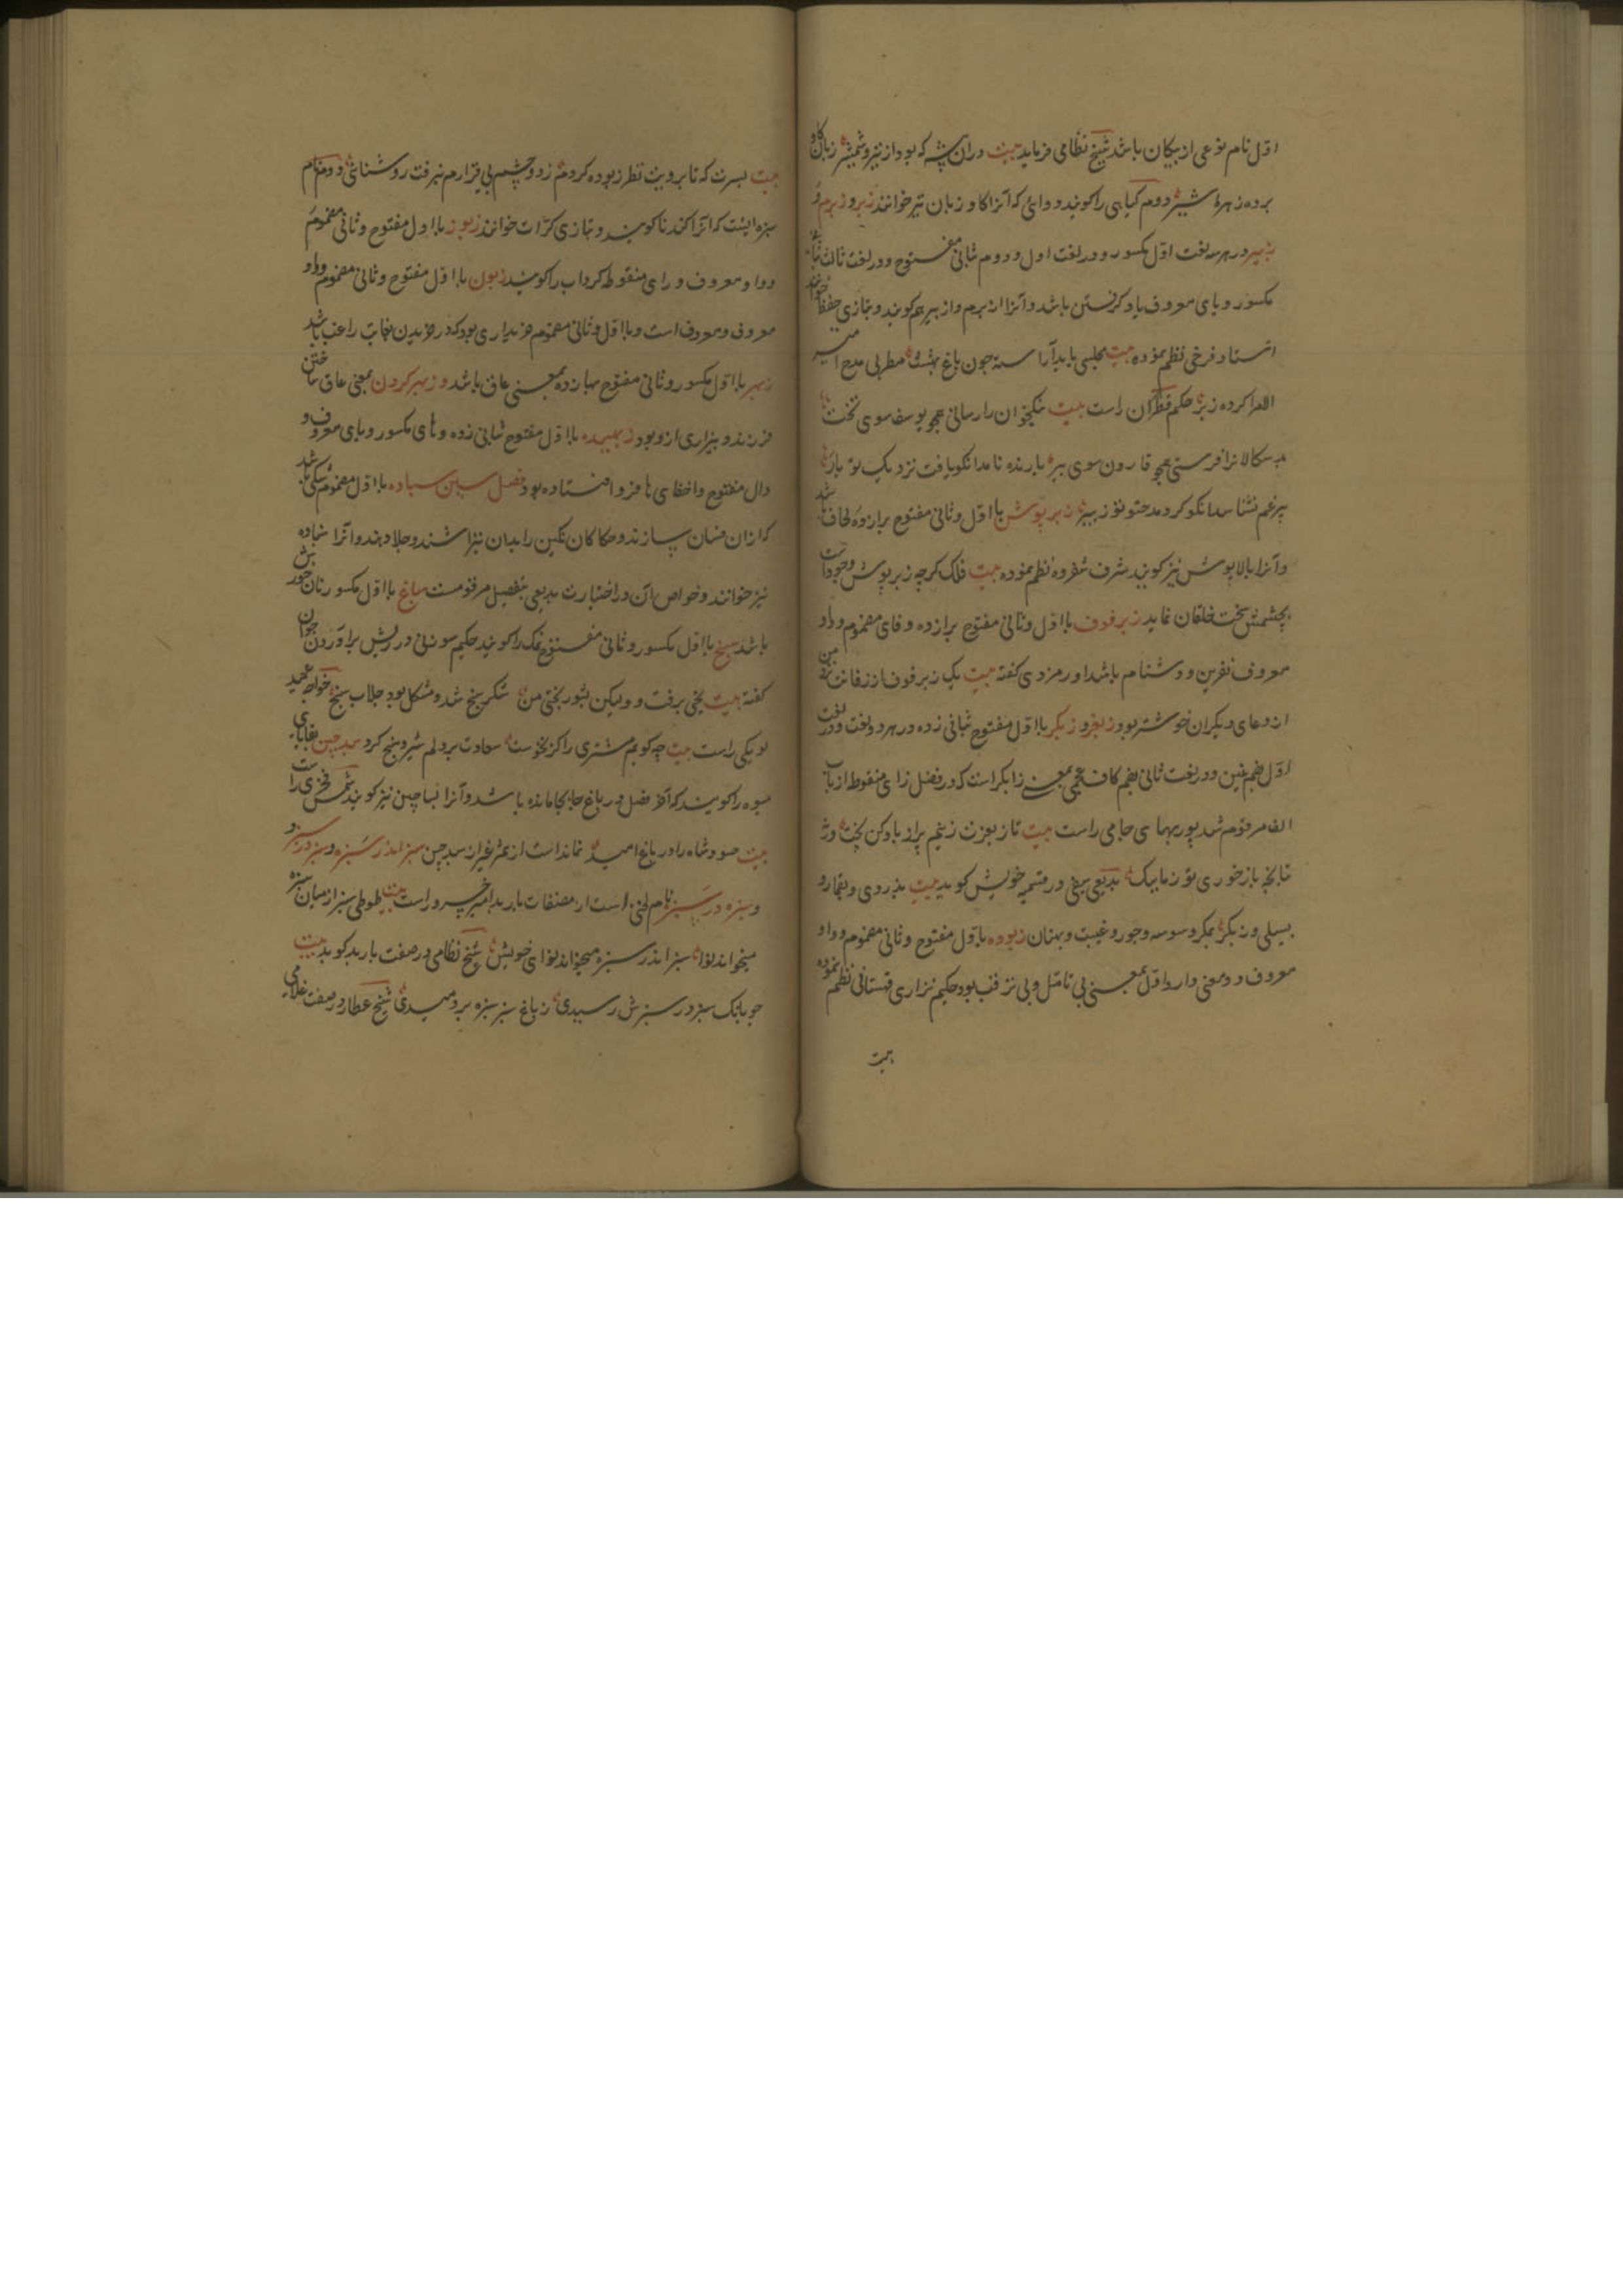 اول نام نوعی از پیکان باشد شیخ نظامی فرماید بیت دران بیشه که بود از تیر و شمشیر زبان گاو
برده زهره شیر دوم گیاهی را کویند دوائی که آنرا کاو زبان نیز خوانند زبر و زبرم و
زبیر در هر سه لغت اول مکسور و در لغت اول و دوم ثانی مفتوح و در لغت ثالث ثانی
مکسور و یای معروف یاد کرفتن باشد و آنرا از برم و از بیر هم کویند و بتازی حفظ خوانند
استاد فرخی نظم نموده بیت مجلسی باید آراسته چون باغ بهشت مطربی مدح امیر
کرده زبر حکیم قطران راست بیت نیکخوان را رسانی همچو یوسف سوی تخت
بد سکالانرا فرستی همچو قارون سوی بیر باز نداند انکو یافت نزدیک تو بار
نشناسد انکو کرد مدحتو زبیر زبر پوش با اول و ثانی مفتوح برازده لحاف باشد
و آنرا بالاپوش نیز کویند شرف شفروه نظم نموده بیت فلک کرچه زبر پوش وجودست
بچشمش سخت خلقان نماید زبرفوف با اول و ثانی مفتوح برازده و فای مضموم و واو
معروف نفرین و دشنام باشد اورمزدی کفته بیت یک زبرفوف از زفانت به من
از دعای دیکران خوشتر بود زبغر و زبکر با اول مفتوح بثانی زده در هر دو لغت و در لغت
اول بضم غین و در لغت ثانی بضم کاف عجمی بمعنی زابکر است که در فصل زای منقوط از باب
الف مرقوم شد پوربهای جامی راست بیت تا زبغرت زنیم پر باد کن
باز خوری تو زما یک بدیعی سیفی در قسمیه خویش کوید بیت بذردی و بقمار و
بسیلی و زبکر بمکر و سوسه و جور و غیبت و بهتان زبوده با اول مفتوح و ثانی مضموم و واو
معروف دو معنی دارد اول بمعنی بی تامل و بی توقف بود حکیم نزاری قهستانی نظم نموده
بیت
بیت بسرت که تا برویت نظر زبوده کردم زدو چشم بی قرارم نبرفت روشنائی دوم نام
سبزه ایست که آنرا کندنا کویند و بتازی کراث خوانند زبوز با اول مفتوح و ثانی مضموم
و واو معروف و رای منقوط کرداب را کویند زبون با اول مفتوح و ثانی مضموم و واو
معروف معروف است و با اول و ثانی مضموم خریداری بود که در خریدن بغایت راغب باشد
زبهر با اول مکسور و ثانی مفتوح بها زده بمعنی عاق باشد و زبهر کردن بمعنی عاق ساختن
فرزند و بیزاری ازو بود زبهیده با اول مفتوح بثانی زده و های مکسور و یای معروف و
دال مفتوح و اخفای ها فرو افتاده بود فصل سین سباده با اول مضموم سنکی باشد
که ازان فسان سازند و حکاکان نکین را بدان بتراشند و جلا دهند و آنرا سنباده
نیز خوانند و خواص آن در اختیارت بدیعی بتفصیل مرقومست سباغ با اول مکسور نان خورش
باشد سبخ با اول مکسور و ثانی مفتوح نمک را کویند حکیم سوزنی در ریش براوردن جوان
کفته بیت یخی برفت و ولیکن بشور بختی من شکر سبخ شد و مشکل بود جلاب سبخ خواجه عمید
لویکی راست بیت چه کویم مشتری را کز نحوست سعادت بر دلم شیر و سبخ کرد سبد چین بقایای
میوه را کویند که آخر فصل در باغ جابجا مانده باشد و آنرا پساچین نیز کویند شمس فخری راست
بیت حسود شاه را در باغ امید نماندست از ثمر غیر از سبدچین سبز اندر سبزه و سبز در سبز
و سبزه در سبز نام لحنی است از مصنفات باربد امیر خسرو راست بیت طوطی سبز از میان سبزه
میخواند نوا سبز اندر سبزه میخواند نوای خویش شیخ نظامی در صفت باربد کوید بیت
چو بانک سبز در سبزش رسیدی ز باغ سبز سبزه بردمیدی شیخ عطار در صفت غلامی